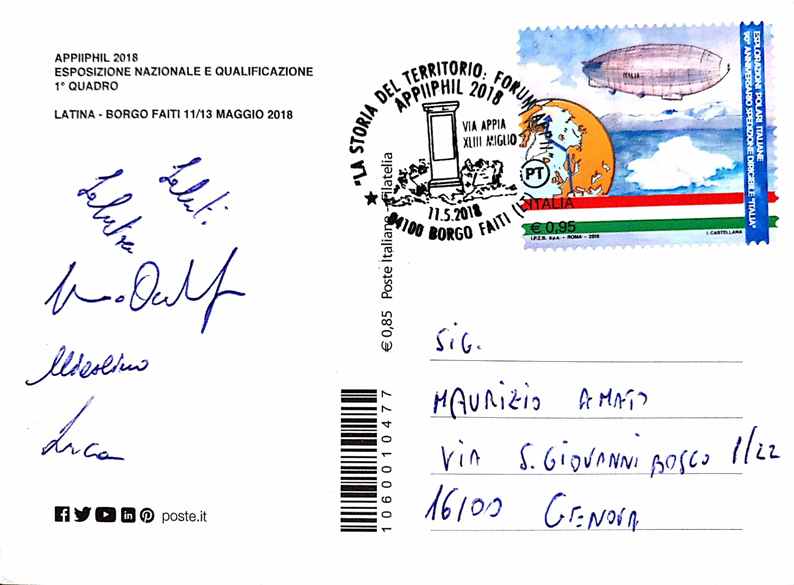 APPIIPHIL 2018
ESPOSIZIONE NAZIONALE E QUALIFICAZIONE
1° QUADRO
LATINA - BORGO FAITI 11/13 MAGGIO 2018
Saluti
Luca
poste.it
€ 0,85 Poste Italiane - Filatelia
1060010477
"LA STORIA DEL TERRITORIO: FORUM APPII"
APPIIPHIL 2018
VIA APPIA
XLIII MIGLIO
11.5.2018
04100 BORGO FAITI
PT
ITALIA
ESPLORAZIONI POLARI ITALIANE
90° ANNIVERSARIO SPEDIZIONE DIRIGIBILE "ITALIA"
ITALIA
€ 0,95
I.P.Z.S. S.p.A. - ROMA - 2018
I. CASTELLANA
SIG.
MAURIZIO AMATO
VIA S. GIOVANNI BOSCO 1/22
16100 GENOVA